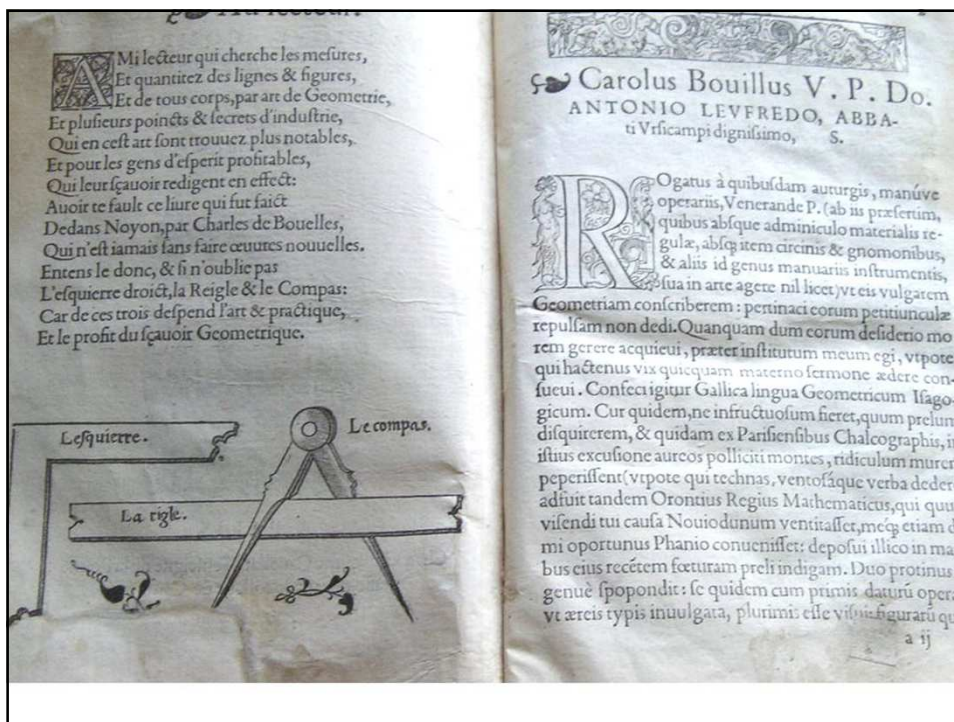 Au lecteur.
AMi lecteur qui cherche les meſures,
Et quantitez des lignes & figures,
Et de tous corps, par art de Geometrie,
Et pluſieurs poincts & ſecrets d'induſtrie,
Qui en ceſt art ſont trouuez plus notables,
Et pour les gens d'eſperit profitables,
Qui leur ſçauoir redigent en effect:
Auoir te fault ce liure qui fut faict
Dedans Noyon, par Charles de Bouelles,
Qui n'eſt iamais ſans faire œuures nouuelles.
Entens le donc, & ſi n'oublie pas
L'eſquierre droict, la Reigle & le Compas:
Car de ces trois deſpend l'art & practique,
Et le profit du ſçauoir Geometrique.
Leſquierre.
Le compas.
La rigle.
Carolus Bouillus V. P. Do.
ANTONIO LEVFREDO, ABBA-
ti Vrſicampi digniſsimo, S.
ROgatus à quibuſdam auturgis, manúve
operariis, Venerande P. (ab iis præſertim,
quibus abſque adminiculo materialis re-
gulæ, abſq; item circinis & gnomonibus,
& aliis id genus manuariis inſtrumentis,
ſua in arte agere nil licet) vt eis vulgarem
Geometriam conſcriberem: pertinaci eorum petitiunculæ
repulſam non dedi. Quanquam dum eorum deſiderio mo
rem gerere acquieui, præter inſtitutum meum egi, vtpote
qui hactenus vix quicquam materno ſermone ædere con-
ſueui. Confeci igitur Gallica lingua Geometricum Iſago-
gicum. Cur quidem, ne infructuoſum fieret, quum prelum
diſquirerem, & quidam ex Pariſienſibus Chalcographis, i
iſtius excuſione aureos polliciti montes, ridiculum murem
peperiſſent (vtpote qui technas, ventoſáque verba deder
adfuit tandem Orontius Regius Mathematicus, qui quu
viſendi tui cauſa Nouiodunum ventitaſſet, meq; etiam d
mi oportunus Phanio conueniſſet: depoſui illico in ma
bus eius recétem fœturam preli indigam. Duo protinus
genuè ſpopondit: ſe quidem cum primis daturú opera
vt æreis typis inuulgata, plurimis eſſe figurarú qu
a ij